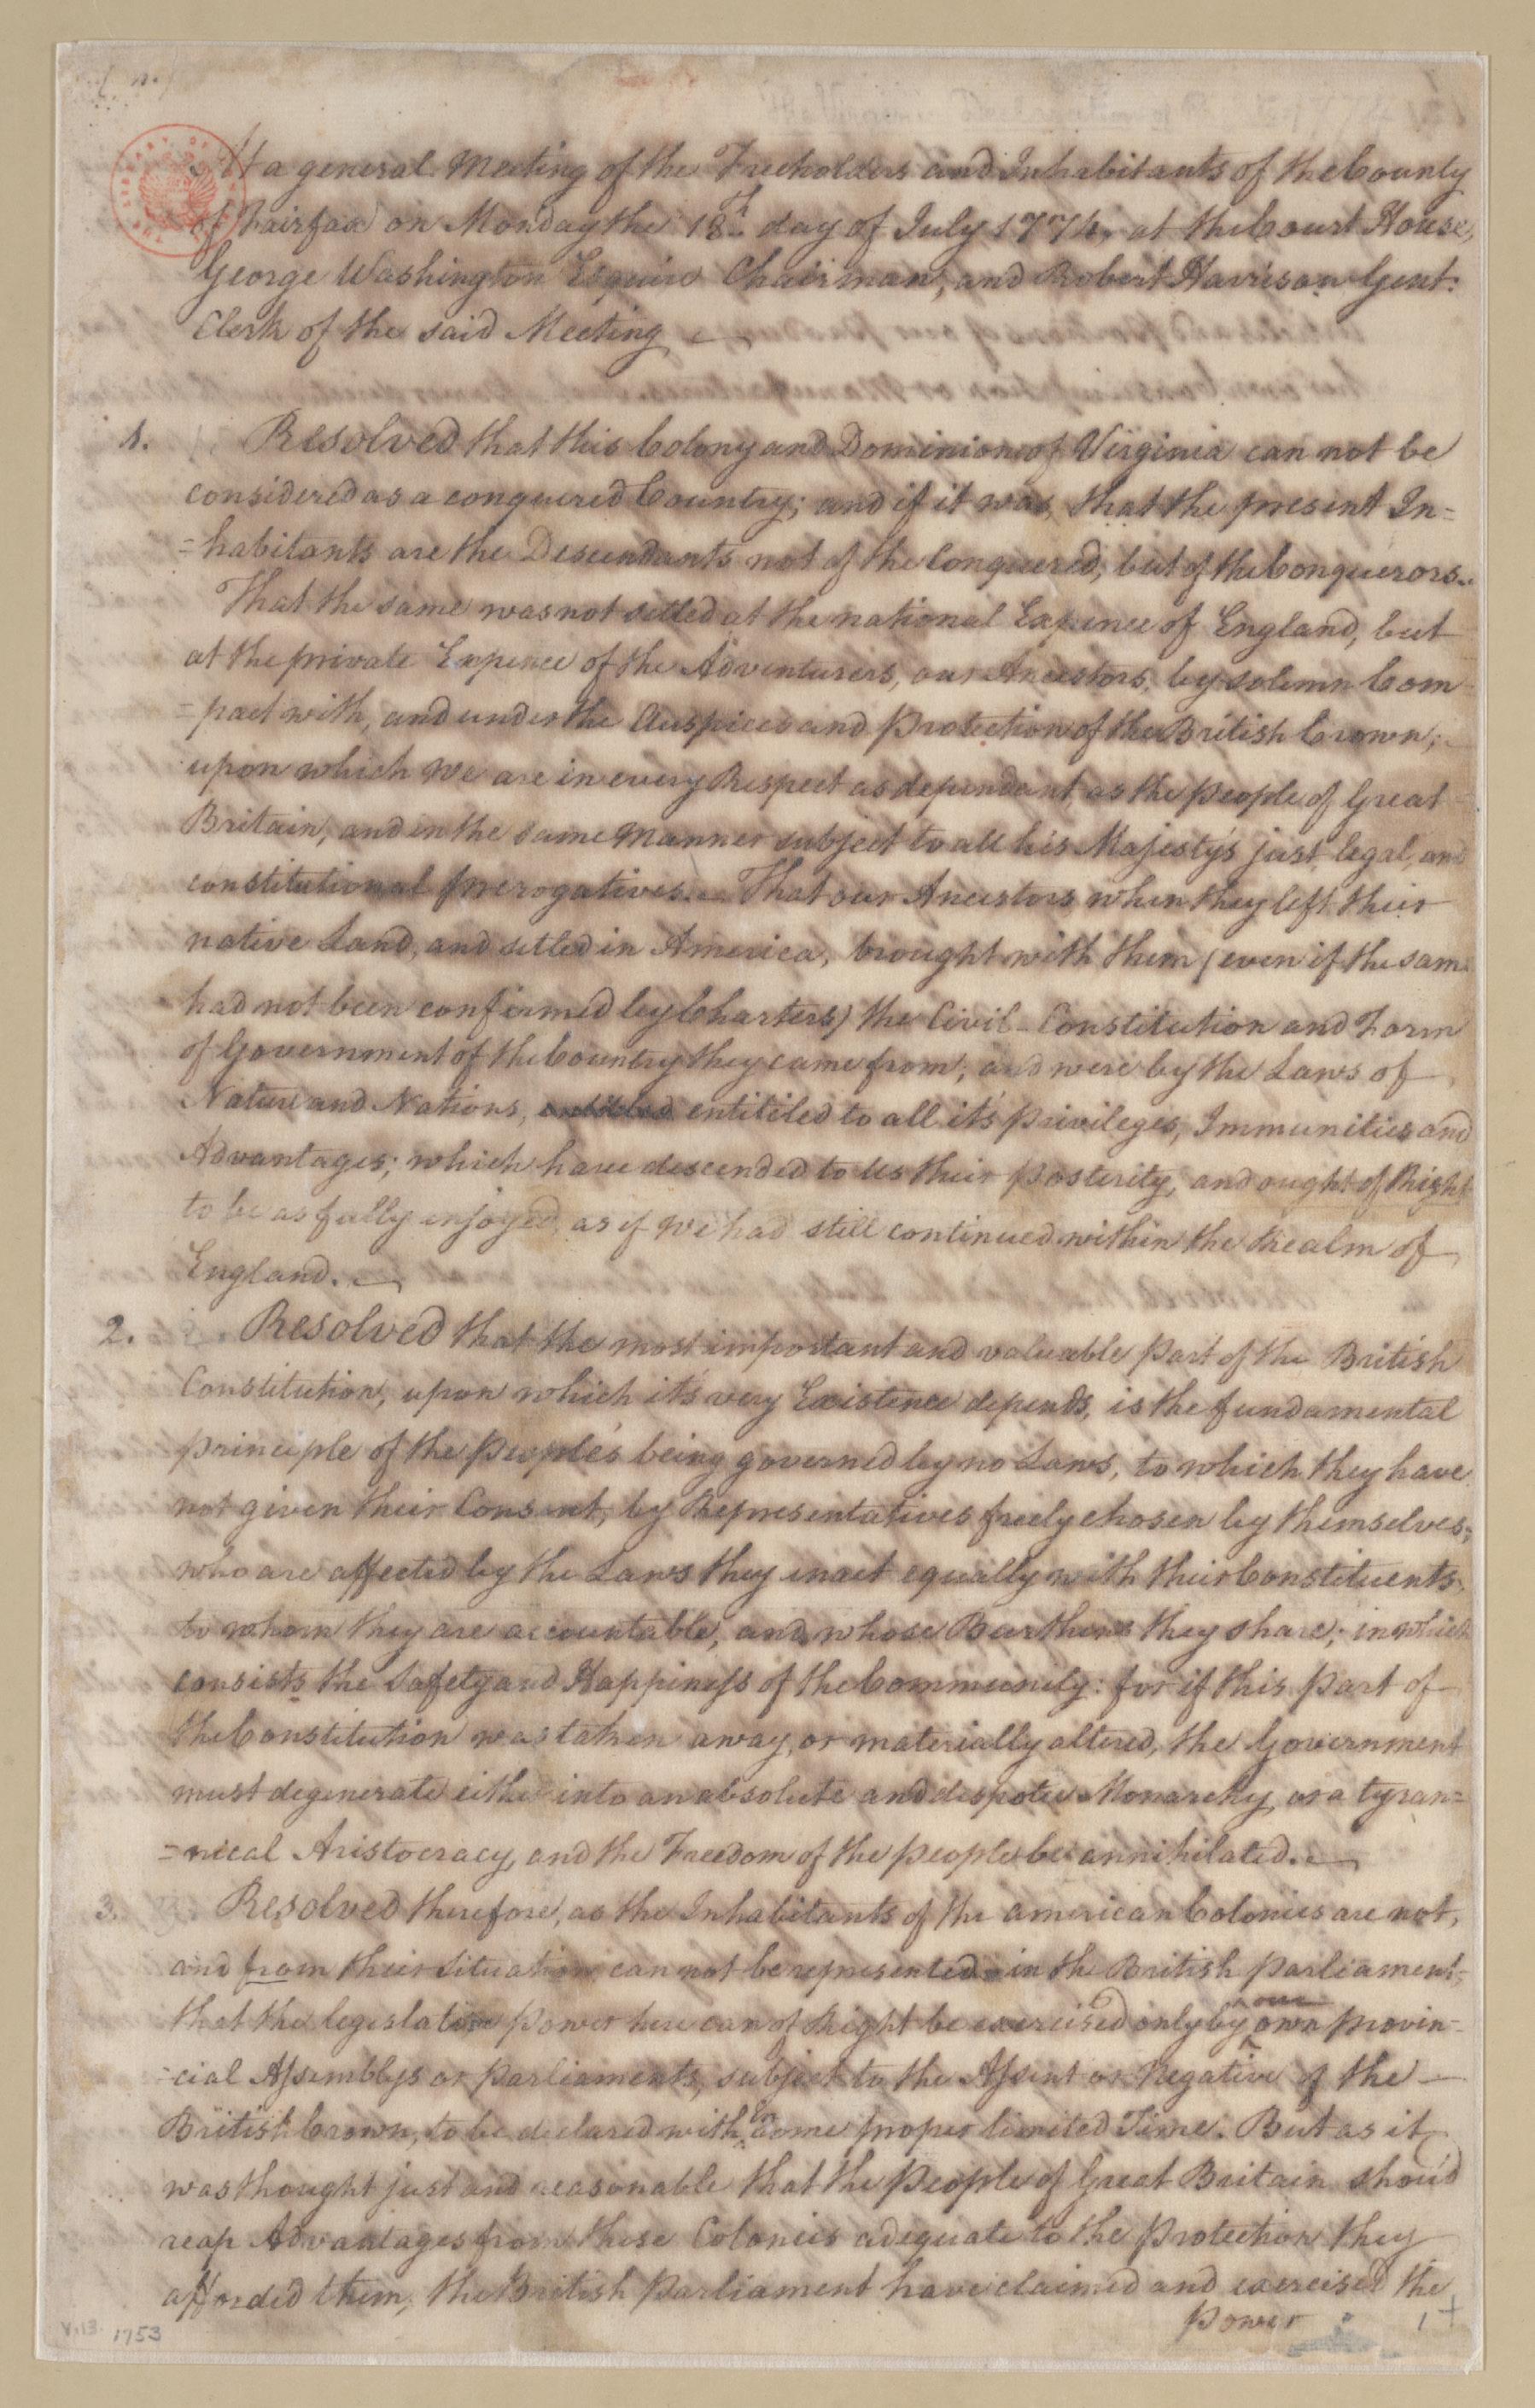 At a general Meeting of the Freeholders and Inhabitants of the County
of Fairfax on Monday the 18th. day of July 1774, at the Court House,
George Washington Esquire Chairman, and Robert Harrison Gent:
Clerk of the said Meeting
1. Resolved that this Colony and Dominion of Virginia can not be
considered as a conquered Country; and if it was, that the present In=
=habitants are the Descendants not of the Conquered, but of the Conquerors.
That the same was not setled at the national Expence of England, but
at the private Expence of the Adventurers, our Ancestors, by solemn Com
=pact with, and under the Auspices and Protection of the British Crown;
upon which we are in every Respect as dependant, as the People of Great
Britain, and in the same Manner subject to all his Majesty's just, legal, and
constitutional Prerogatives. That our Ancestors, when they left their
native Land, and setled in America, brought with them (even if the same
had not been confirmed by Charters) the Civil-Constitution and Form
of Government of the Country they came from; and were by the Laws of
Nature and Nations, entitiled to all it's Privileges, Immunities and
Advantages; which have descended to Us their Posterity, and ought of Right
to be as fully enjoyed, as if we had still continued within the Realm of
England.
2. Resolved that the most important and valuable Part of the British
Constitution, upon which it's very Existence depends, is the fundamental
Principle of the People's being governed by no Laws, to which they have
not given their Consent, by Representatives freely chosen by themselves;
who are affected by the Laws they enact equally with their Constituents;
to whom they are accountable, and whose Burthens they share; in which
consists the Safety and Happiness of the Community: for if this Part of
the Constitution was taken away, or materially altered, the Government
must degenerate either into an absolute and despotic Monarchy, or a tyran=
=nical Aristocracy, and the Freedom of the People be annihilated.
3. Resolved therefore, as the Inhabitants of the american Colonies are not,
and from their Situation can not be represented in the British Parliament,
that the legislative Power here can of Right be exercised only by our own Provin=
=cial Assemblys or Parliaments, subject to the Assent or Negative of the
British Crown, to be declared within some proper limited Time. But as it
was thought just and reasonable that the People of Great Britain shou'd
reap Advantages from these Colonies adequate to the Protection they
afforded them, the British Parliament have claimed and exercised the
Power
V.13. 1753